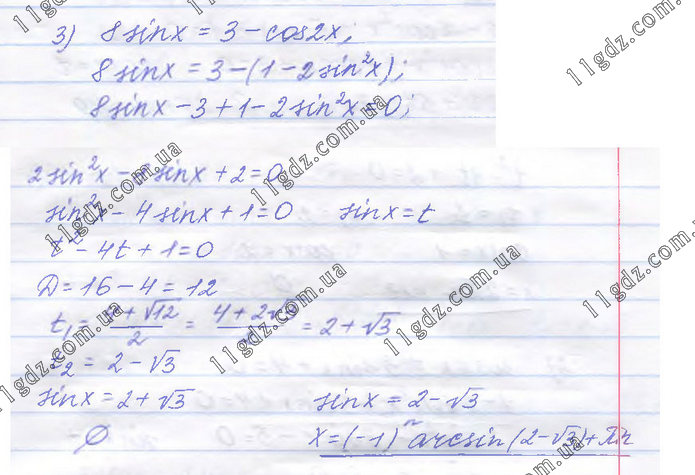 3) 8sinx = 3 - cos2x;
8sinx = 3 - (1 - 2sin²x);
8sinx - 3 + 1 - 2sin²x = 0;
2sin²x - 8sinx + 2 = 0
sin²x - 4sinx + 1 = 0 sinx = t
t² - 4t + 1 = 0
D = 16 - 4 = 12
t₁ = (4 + √12)/2 = (4 + 2√3)/2 = 2 + √3
t₂ = 2 - √3
sinx = 2 + √3 sinx = 2 - √3
∅ x = (-1)ⁿ arcsin(2 - √3) + πn
11gdz.com.ua
11gdz.com.ua
11gdz.com.ua
11gdz.com.ua
11gdz.com.ua
11gdz.com.ua
11gdz.com.ua
11gdz.com.ua
11gdz.com.ua